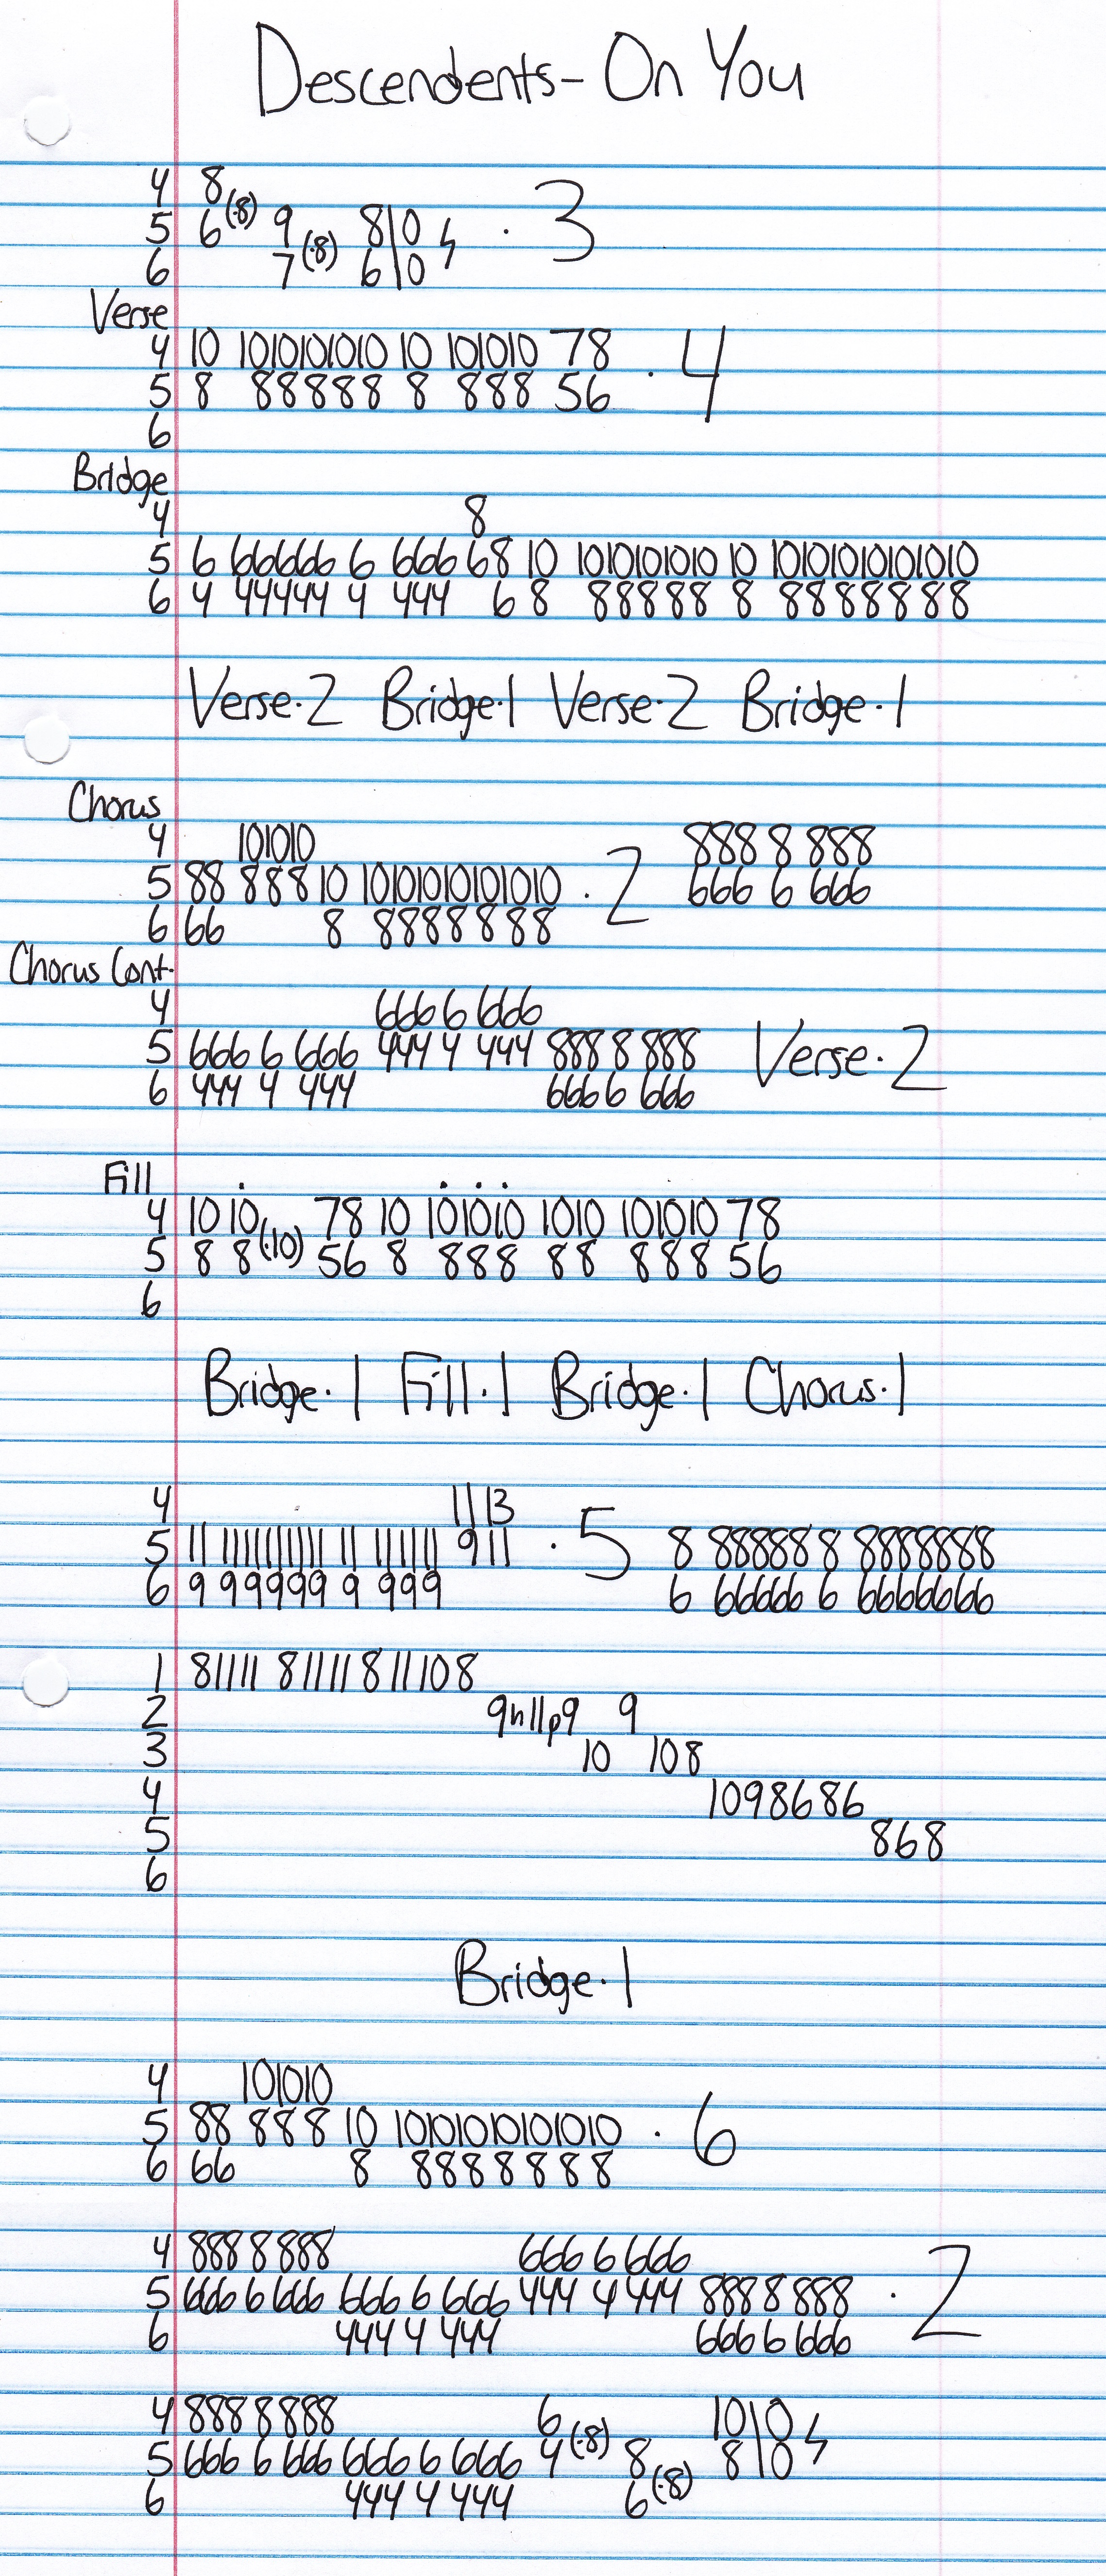 Descendents - On You
4 8
5 6(·8) 9 8\0 ϟ · 3
6 7(·8) 6\0
Verse
4 10 1010101010 10 101010 78
5 8 88888 8 888 56 · 4
6
Bridge
4 8
5 6 66666 6 666 68 10 1010101010 10 10101010101010
6 4 44444 4 444 6 8 88888 8 8888888
Verse·2 Bridge·1 Verse·2 Bridge·1
Chorus
4 101010 888 8 888
5 88 888 10 10101010101010 · 2 666 6 666
6 66 8 8888888
Chorus Cont.
4 666 6 666
5 666 6 666 444 4 444 888 8 888 Verse·2
6 444 4 444 666 6 666
Fill
4 10 10 78 10 101010 1010 101010 78
5 8 8(·10) 56 8 888 88 888 56
6
Bridge·1 Fill·1 Bridge·1 Chorus·1
4 11 13
5 11 1111111111 11 111111 9 11 · 5 8 88888 8 8888888
6 9 99999 9 999 6 66666 6 6666666
1 81111 81111 811108
2 9h11p9 9
3 10 108
4 1098686
5 868
6
Bridge·1
4 101010
5 88 888 10 10101010101010 · 6
6 66 8 8888888
4 888 8 888 666 6 666
5 666 6 666 666 6 666 444 4 444 888 8 888 · 2
6 444 4 444 666 6 666
4 888 8 888 6 10\0
5 666 6 666 666 6 666 4(·8) 8 8\0 ϟ
6 444 4 444 6(·8)